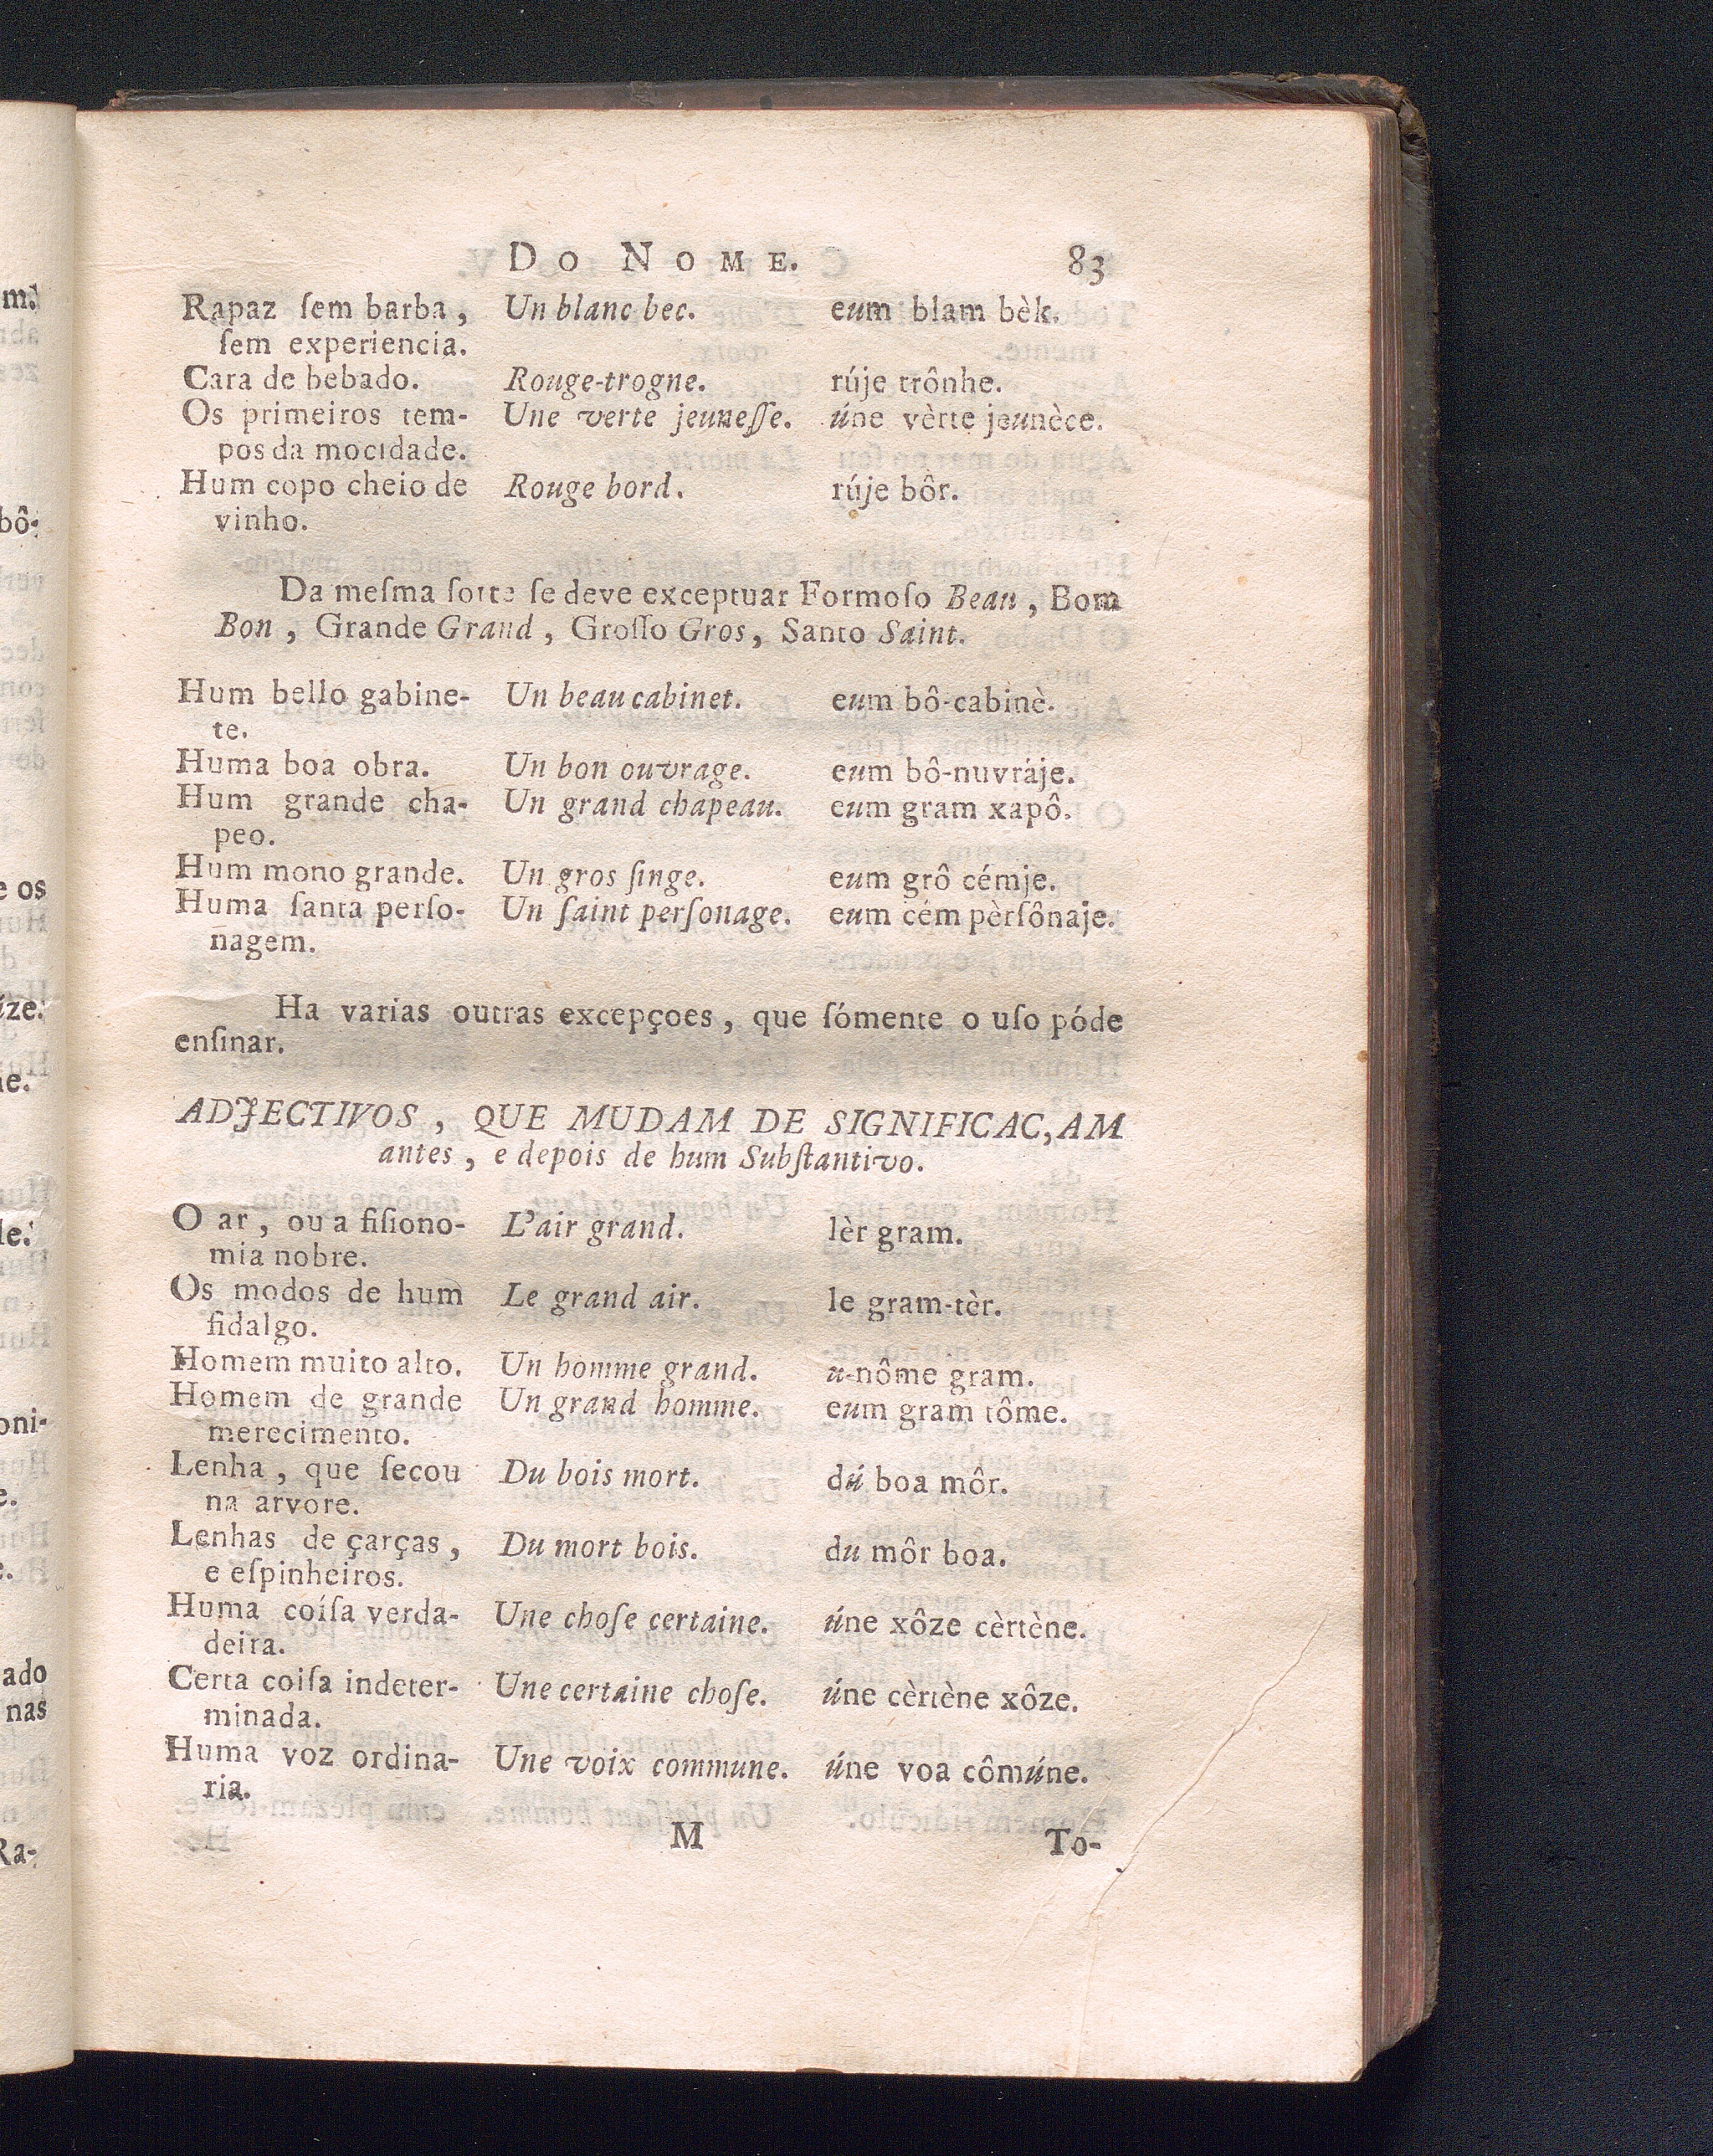 DO NOME. 83
Rapaz ſem barba, Un blanc bec. eum blam bèk.
ſem experiencia.
Cara de bebado. Rouge-trogne. rúje trônhe.
Os primeiros tem- Une verte jeuneſſe. úne vèrte jeunèce.
pos da mocidade.
Hum copo cheio de Rouge bord. rúje bôr.
vinho.
Da meſma ſorte ſe deve exceptuar Formoſo Beau, Bom
Bon, Grande Grand, Groſſo Gros, Santo Saint.
Hum bello gabine- Un beau cabinet. eum bô-cabinè.
te.
Huma boa obra. Un bon ouvrage. eum bô-nuvráje.
Hum grande cha- Un grand chapeau. eum gram xapô.
peo.
Hum mono grande. Un gros ſinge. eum grô cémje.
Huma ſanta perſo- Un ſaint perſonage. eum cém pèrſônaje.
nagem.
Ha varias outras excepçoes, que ſómente o uſo póde
enſinar.
ADJECTIVOS, QUE MUDAM DE SIGNIFICAC,AM
antes, e depois de hum Subſtantivo.
O ar, ou a fiſiono- L'air grand. lèr gram.
mia nobre.
Os modos de hum Le grand air. le gram-tèr.
fidalgo.
Homem muito alto. Un homme grand. u-nôme gram.
Homem de grande Un grand homme. eum gram tôme.
merecimento.
Lenha, que ſecou Du bois mort. dú boa môr.
na arvore.
Lenhas de çarças, Du mort bois. du môr boa.
e eſpinheiros.
Huma coíſa verda- Une choſe certaine. úne xôze cèrtène.
deira.
Certa coiſa indeter- Une certaine choſe. úne cèrtène xôze.
minada.
Huma voz ordina- Une voix commune. úne voa cômúne.
ria.
M To-